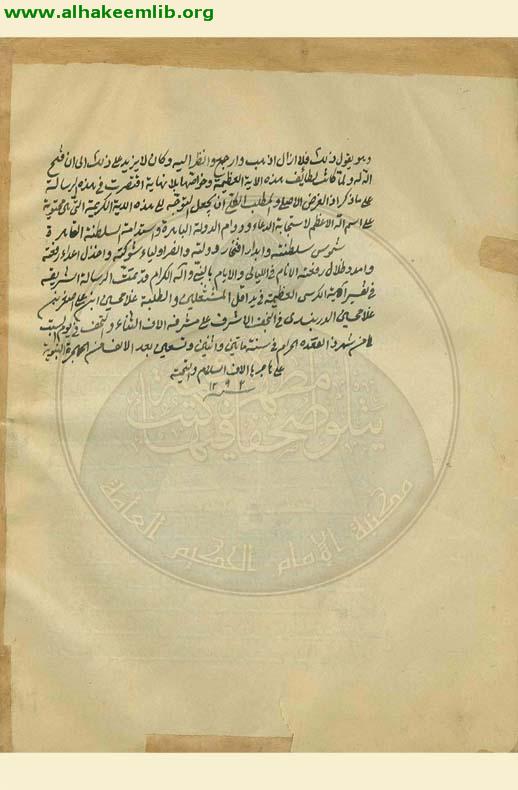 www.alhakeemlib.org
وهو يقول ذلك فلا ازال اذهب وارجع وانظر اليه وكان لا يزيد على ذلك الى ان فتح
الله له ولما كانت لطائف هذه الاية العظيمة وخواصها بلا نهاية اقتصرت في هذه الرسالة
على ما ذكر اذ الغرض الاصلي والمطلب ان يجعل التوجه الى هذه الاية الكريمة التي المحتوية
على اسم الله الاعظم لاستجابة الدعاء ودوام الدولة الباهرة واستدامة السلطنة القاهرة
شموس سلطنته وابدار افتخار دولته والفر اولياء شوكته واخذل اعداء رفعته
وامدد ظلال رفعته الانام في الليالي والايام بالنبي واله الكرام قد تمت الرسالة الشريفة
في تفسير اية الكرسي العظيمة في يد اقل المشتغلين والطلبة غلامحسين ابن علي اصغر بن
غلامحسين الدربندي في النجف الاشرف على مشرفه الاف الثناء والتحف في يوم السبت
من شهر ذي القعدة الحرام في سنة مأتين واثنين وتسعين بعد الالف من الهجرة النبوية
على هاجرها الاف السلام والتحية
سنة ١٢٩٢
يتلو صحفا مطهرة فيها كتب قيمة
مكتبة الإمام الحكيم العامة